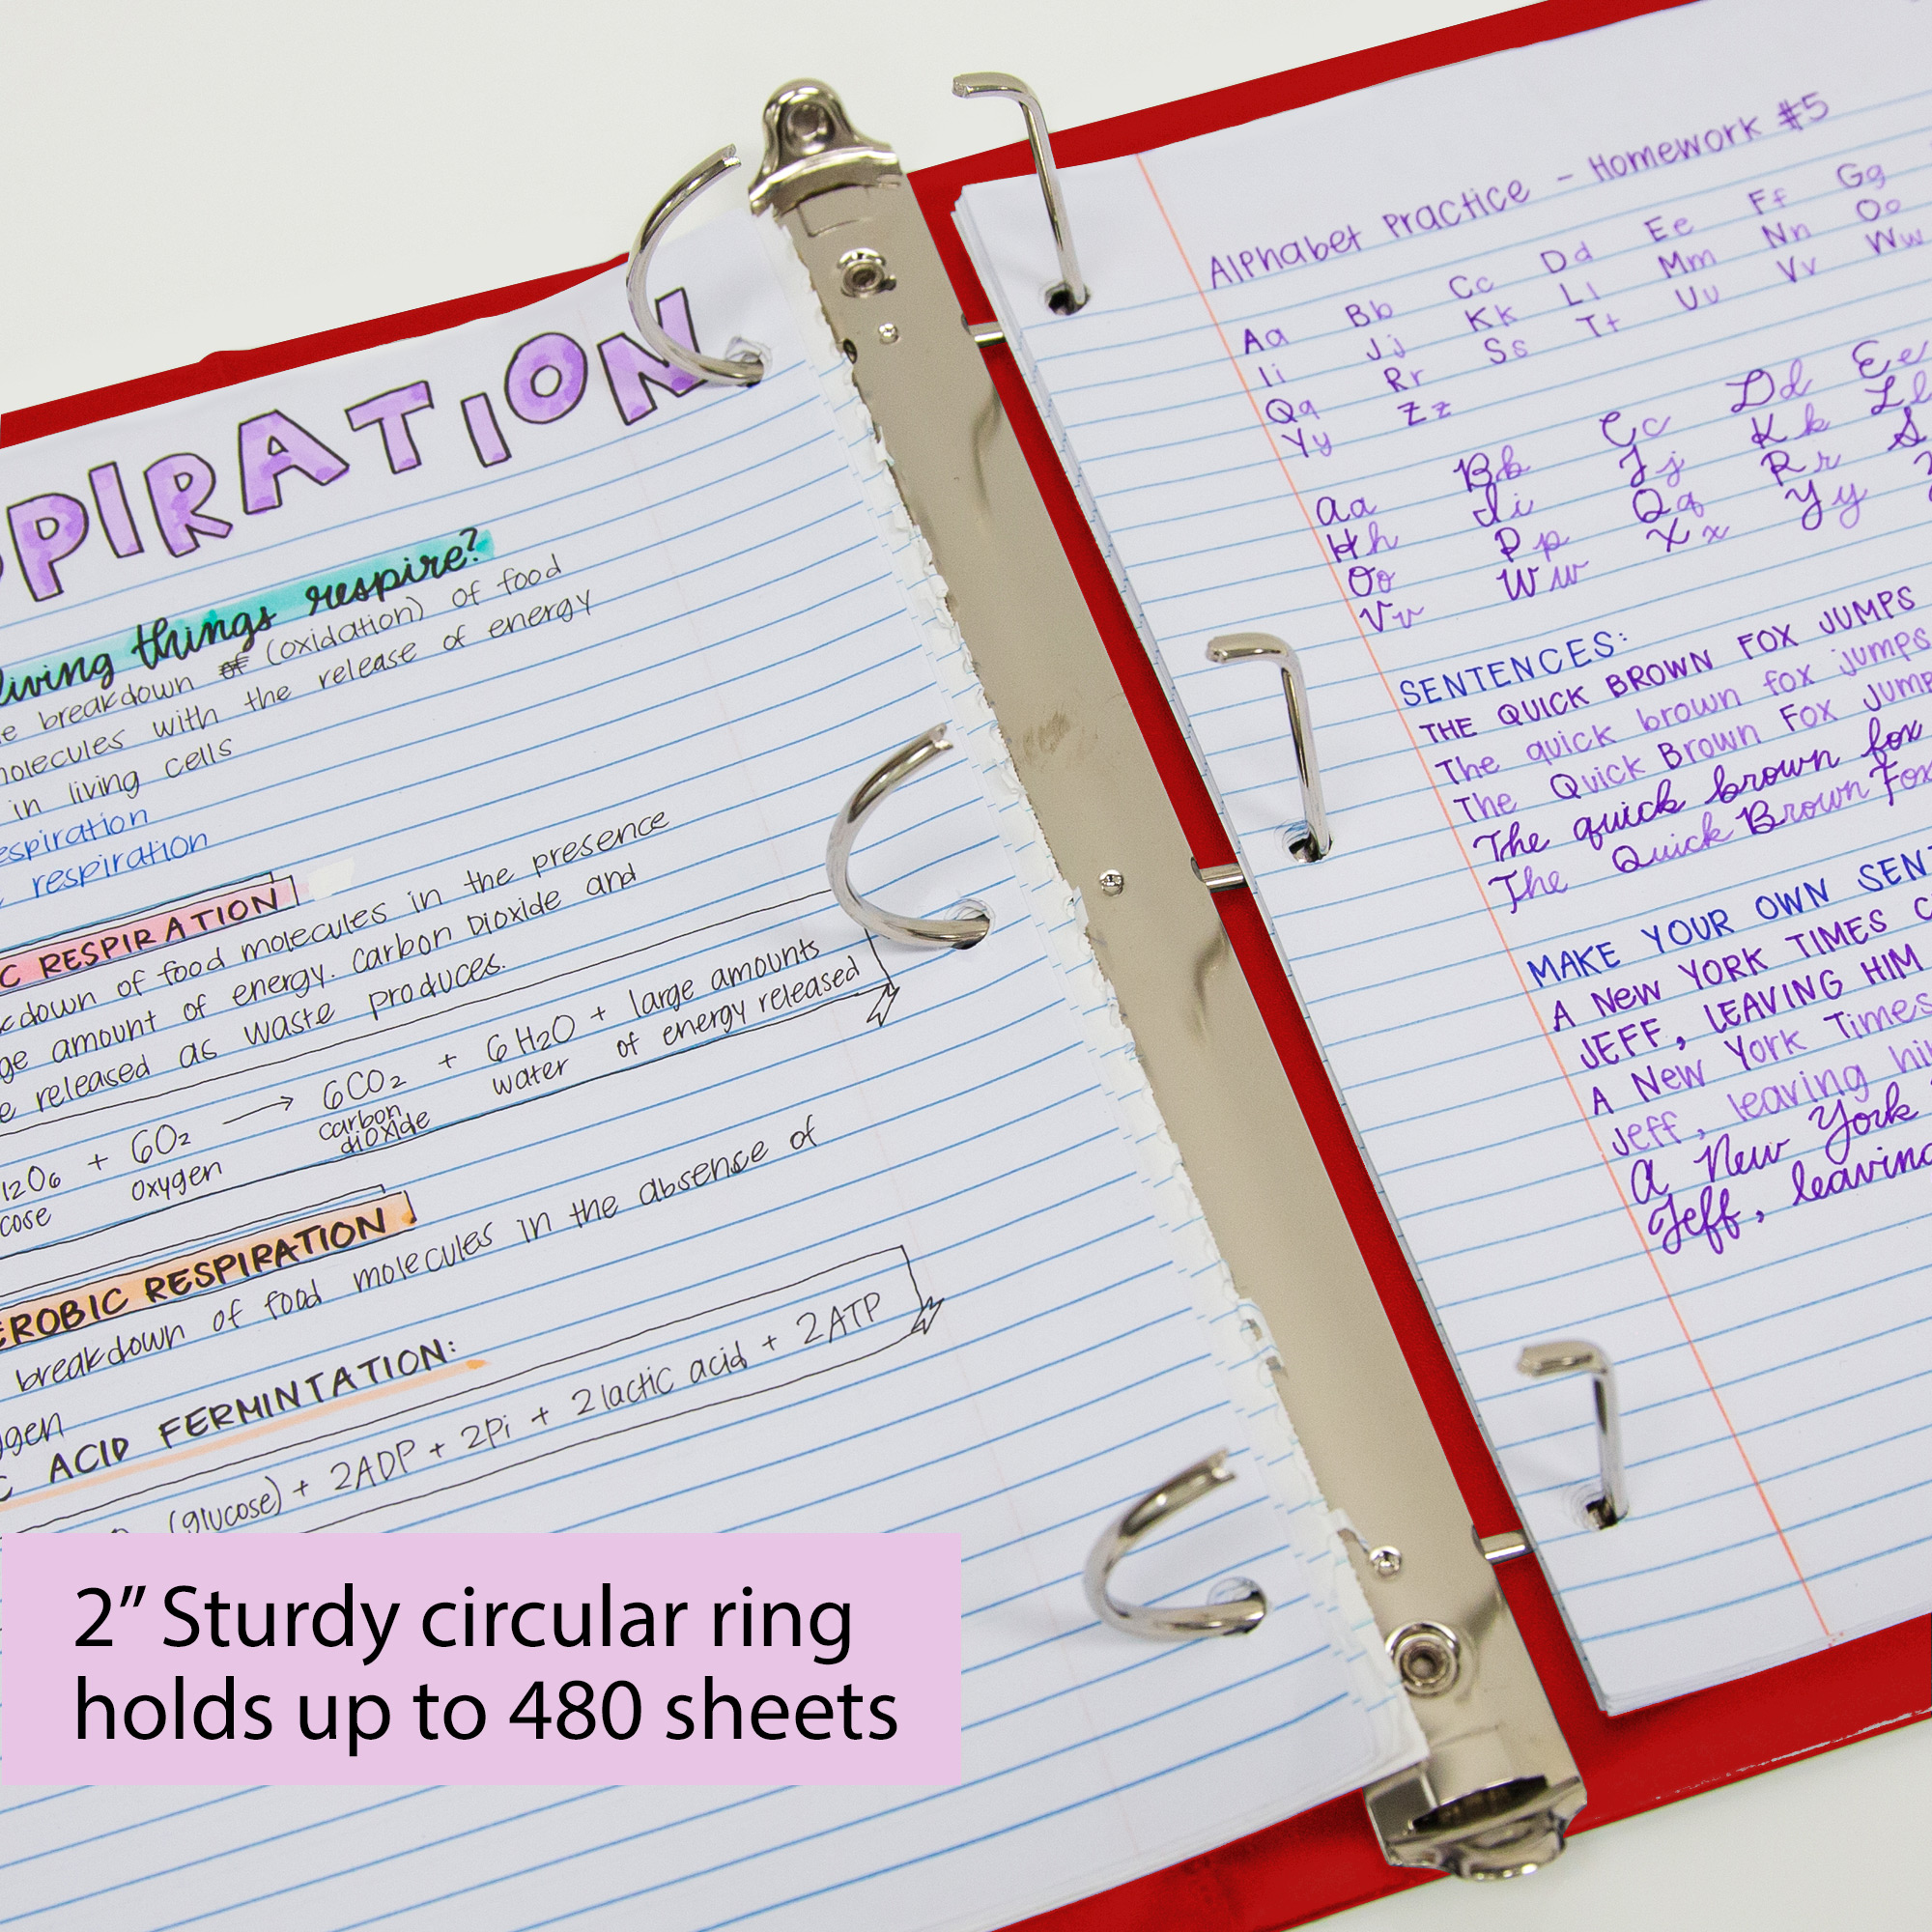 PIRATION
living things respire?
breakdown of (oxidation) of food
molecules with the release of energy
in living cells
respiration
respiration
C RESPIRATION
kdown of food molecules in the presence
amount of energy. Carbon Dioxide and
released as waste produces.
12O6 + 6O2 → 6CO2 + 6H2O + large amounts
cose oxygen carbon dioxide water of energy released
EROBIC RESPIRATION
breakdown of food molecules in the absence of
ygen
C ACID FERMINTATION:
(glucose) + 2ADP + 2Pi + 2 lactic acid + 2ATP
2” Sturdy circular ring
holds up to 480 sheets
Alphabet Practice - Homework #5
Aa Bb Cc Dd Ee Ff Gg
Ii Jj Kk Ll Mm Nn Oo
Qq Rr Ss Tt Uu Vv Ww
Yy Zz
Aa Bb Cc Dd Ee
Hh Ii Jj Kk Ll
Oo Pp Qq Rr S
Vv Ww Xx Yy
SENTENCES:
THE QUICK BROWN FOX JUMPS
The quick brown fox jumps
The Quick Brown Fox Jump
The quick brown fox
The Quick Brown Fox
MAKE YOUR OWN SENT
A NEW YORK TIMES C
JEFF, LEAVING HIM
A New York Times
Jeff, leaving hi
A New York
Jeff, leaving